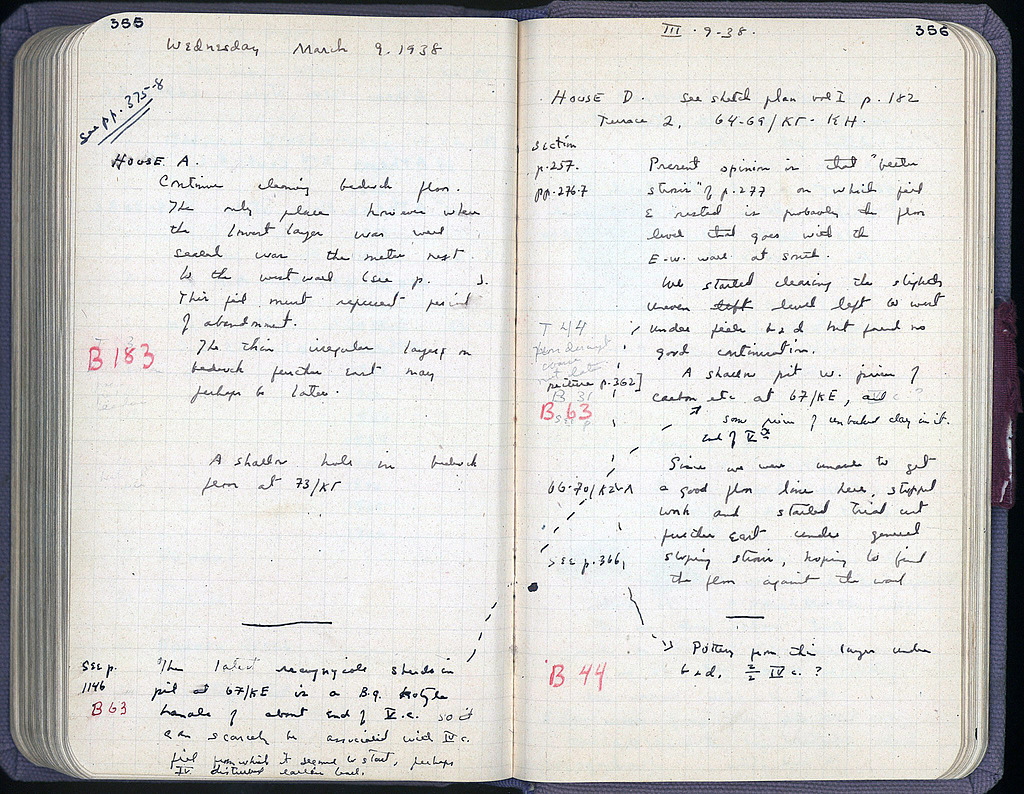 355
Wednesday March 9. 1938
See pp. 375-8
HOUSE A.
Continue cleaning bedrock floor.
The only place however where
the lowest layer was well
sealed was the meter next
to the west wall (see p. ).
This fill must represent period
of abandonment.
B 183
The thin irregular layers on
bedrock further east may
perhaps be later.
A shallow hole in bedrock
floor at 73/KΓ
See p.
1146
B 63
The latest recognizable sherds in
pit at 67/KE is a B.g. kotyle
handle of about end of V.c. so it
can scarcely be associated with IV c.
fill from which it seemed to start, perhaps
IV. disturbed earlier level.
III . 9-38.
356
HOUSE D. See sketch plan vol I p. 182
Terrace 2, 64-69/KΓ-KH.
section
p. 257.
pp. 276-7
Present opinion is that "better
strosis" of p. 277 on which fill
E rested is probably the floor
level that goes with the
E-W. wall at south.
We started cleaning the slightly
uneven left level left to west
under fill b+d but found no
good continuation.
T 44
picture p. 362]
B 63
A shallow pit w. pieces of
carbon etc. at 67/KE,
some pieces of unbaked clay in it.
end of V
66-70/
See p. 366,
Since we were unable to get
a good floor line here, stopped
work and started trial cut
further east under general
sloping strosis, hoping to find
the floor against the wall
B 44
Pottery from this layer under
b+d, 2/2 IV c. ?